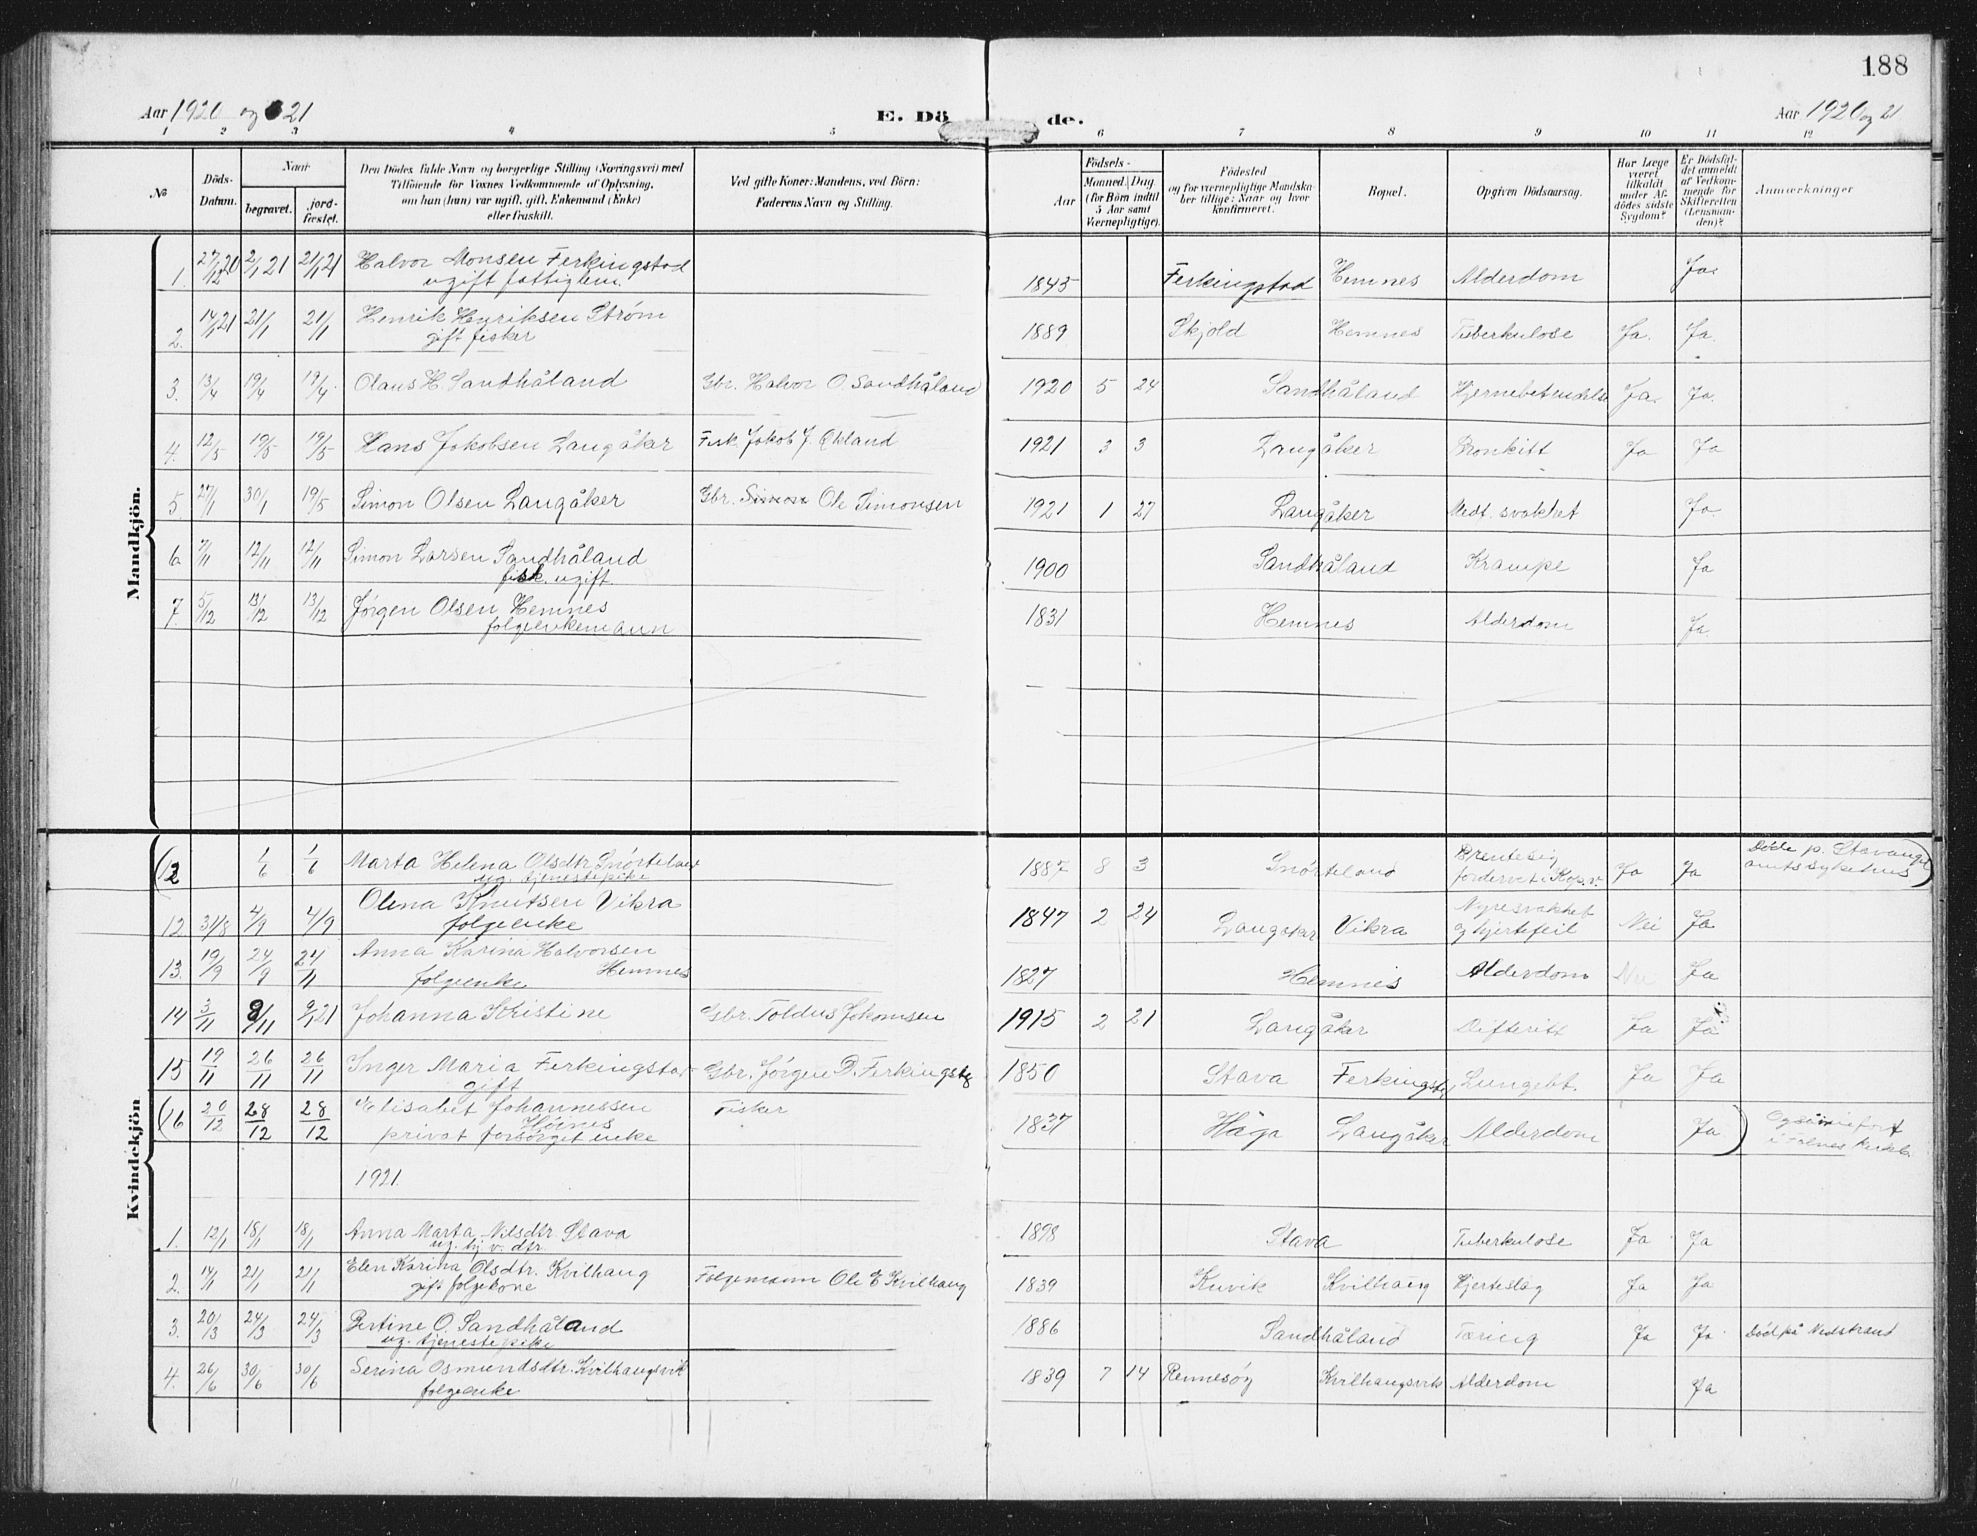 188
Aar 1920 og 21 E. Dö de. Aar 1920 og 21
1 2 3 4 5 6 7 8 9 10 11 12
No
Döds-
Datum.
Naar
begravet.
jord-
fæstet.
Den Dödes fulde Navn og borgerlige Stilling (Næringsvei) med
Tilföiende for Voxnes Vedkommende af Oplysning,
om han (hun) var ugift, gift, Enkemand (Enke)
eller fraskilt.
Ved gifte Koner: Mandens, ved Börn:
Faderens Navn og Stilling.
Aar
Födsels-
Maaned. Dag
(for Börn indtil
5 Aar samt
Værnepligtige).
Födested
og for værnepligtige Mandska-
ber tillige: Naar og hvor
konfirmeret.
Bopæl.
Opgiven Dödsaarsag.
Har Læge
været
tilkaldt
under Af-
dödes sidste
Sygdom?
Er Dödsfal-
det anmeldt
af Vedkom-
mende for
Skifteretten
(Lensman-
den)?
Anmærkninger
Mandkjön.
1. 27/12 20 2/1 21 21/1 21 Halvor Monsen Ferkingstad 1845 Ferkingstad Hemnes Alderdom Ja
ugift fattiglem.
2. 14/1 21 21/1 21/1 Henrik Henriksen Strøm 1889 Skjold Hemnes Tuberkulose Ja. Ja.
gift fisker
3. 13/4 19/4 19/4 Olaus H. Sandhåland Gbr. Halvor O. Sandhåland 1920 5 24 Sandhåland Ja. Ja.
4. 12/5 19/5 19/5 Hans Jakobsen Langåker Fisk. Jakob J. Økland 1921 3 3 Langåker Bronkitt Ja Ja
5. 27/1 30/1 19/5 Simon Olsen Langåker Gbr. Simon Ole Simonsen 1921 1 27 Langåker Medf. svakhet Ja.
6 7/11 12/11 12/11 Simon Larsen Sandhåland 1900 Sandhåland Krampe Ja
fisk. ugift.
7. 5/12 13/12 13/12 Jørgen Olsen Hemnes 1831 Hemnes Alderdom Ja
folgeenkemann
Kvindekjön
(12 1/6 1/6 Marta Helena Olsdtr Snørteland 1887 8 3 Snørteland Ja Ja Døde p. Stavanger
ug. tjenestepike amtssykehus)
12 31/8 4/9 4/9 Olena Knutsen Vikra 1847 2 24 Langåker Vikra Nyresvakhet Nei Ja
folgeenke og hjertefeil
13. 19/9 24/9 24/11 Anna Karina Halvorsen 1827 Hemnes Alderdom Nei Ja
Hemnes
folgeenke
14 3/11 9/11 9/1 21 Johanna Kristine Gbr. Toldus Johansen 1915 2 21 Langåker Difterit Ja Ja
15 19/11 26/11 26/11 Inger Maria Ferkingstad Gbr. Jørgen D. Ferkingstd 1850 Stava Ferkingstd Lungebt. Ja Ja
gift
(16 20/12 28/12 28/12 Elisabet Johannessen Fisker 1837 Håga Langåker Alderdom Ja)
Høines
privat forsørget enke
1921
1. 12/1 18/1 18/1 Anna Marta Nilsdtr. Stava 1898 Stava Tuberkulose Ja Ja
ug. hj. v. dtr.
2. 14/1 21/1 21/1 Elen Karina Olsdtr. Kvilhaug Folgemann Ole E Kvilhaug 1839 Kuvik Kvilhaug Hjerteslag Ja Ja
gift folgekone
3. 20/3 24/3 24/3 Bertine O. Sandhåland 1886 Sandhåland Tæring Ja Ja Død på Nedstrand
ug. tjenestepike
4. 26/6 30/6 30/6 Serina Osmundsdtr. Kvilhaugsvik 1839 7 14 Rennesøy Kvilhaugsvik Alderdom Ja
folgeenke